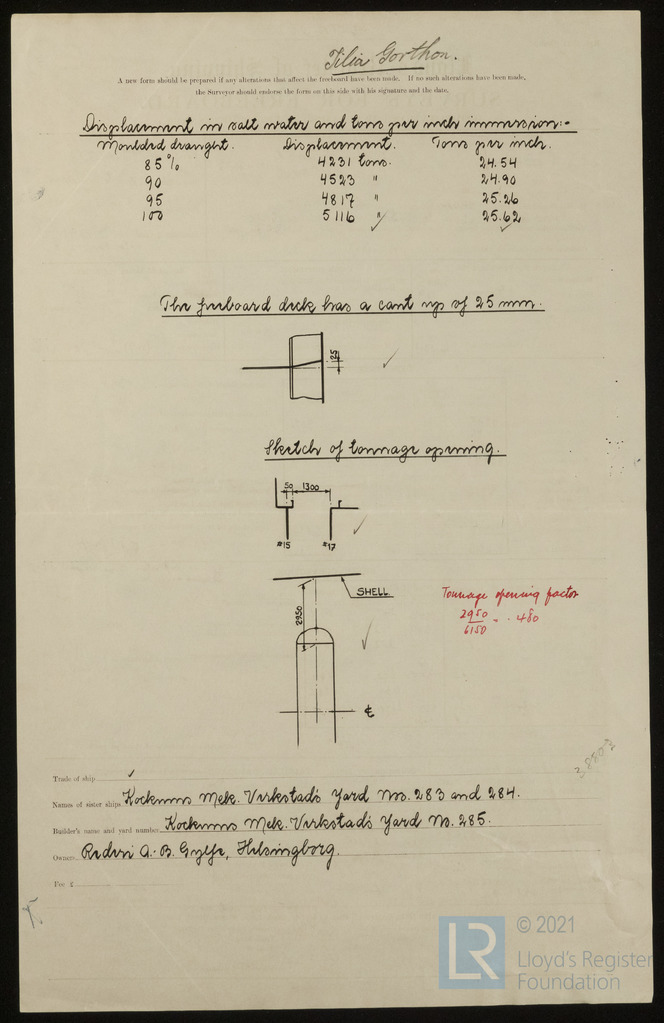 Tilia Gorthon.
A new form should be prepared if any alterations that affect the freeboard have been made. If no such alterations have been made,
the Surveyor should endorse the form on this side with his signature and the date.
Displacement in salt water and tons per inch immersion:-
Moulded draught. Displacement. Tons per inch.
85% 4231 tons. 24.54
90 4523 " 24.90
95 4817 " 25.26
100 5116 " 25.62
The freeboard deck has a cant up of 25 mm.
25
Sketch of tonnage opening.
50 1300
#15 #17
SHELL
2950
Tonnage opening factor
2950
6150 = .480
℄
38803
Trade of ship
Names of sister ships Kockums Mek. Verkstads Yard Nos. 283 and 284.
Builder's name and yard number Kockums Mek. Verkstads Yard No. 285.
Owners Rederi A.-B. Gylfe, Helsingborg.
Fee £
LR © 2021
Lloyd's Register
Foundation